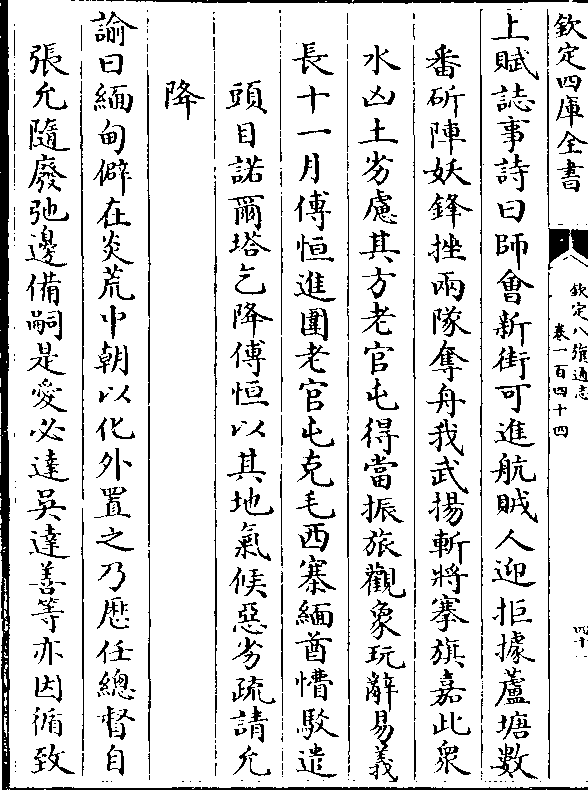 欽定四庫全書
欽定八旗通志
卷一百四十四
四十
上賦誌事詩曰師會新街可進航賊人迎拒據蘆塘數
番斫陣妖鋒挫兩隊奪舟我武揚斬將搴旗嘉此衆
水凶土劣慮其方老官屯得當振旅觀象玩辭易義
長十一月傅恒進圍老官屯克毛西寨緬酋懵駁遣
頭目諾爾塔乞降傅恒以其地氣候惡劣疏請允
降
諭曰緬甸僻在炎荒中朝以化外置之乃歴任總督自
張允隨廢弛邊備嗣是愛必達吳達善等亦因循致